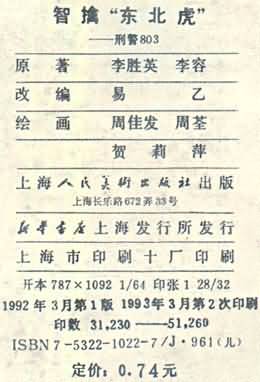 智擒“东北虎”
——刑警803
原著 李胜英 李容
改编 易乙
绘画 周佳发 周荃
贺莉萍
上海人民美術出版社出版
上海长乐路672弄33号
新华书店上海发行所发行
上海市印刷十厂印刷
开本787×1092 1/64 印张1 28/32
1992年3月第1版 1993年3月第2次印刷
印数 31,230——51,260
ISBN7-5322-1022-7/J·961(儿)
定价：0.74元